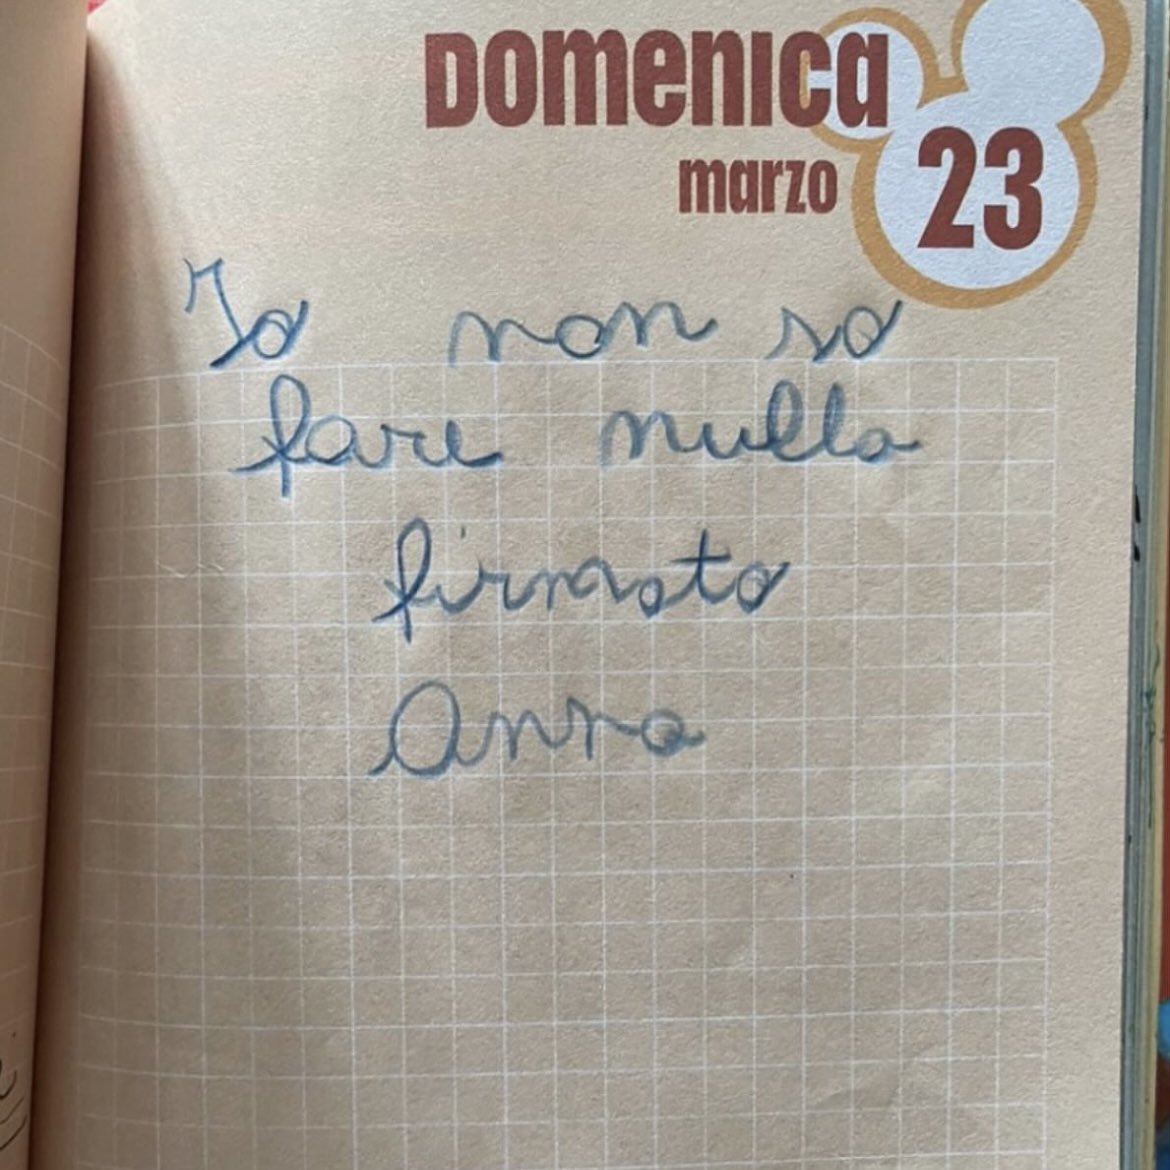 Domenica
marzo 23
Io non so
fare nulla
firmato
Anna